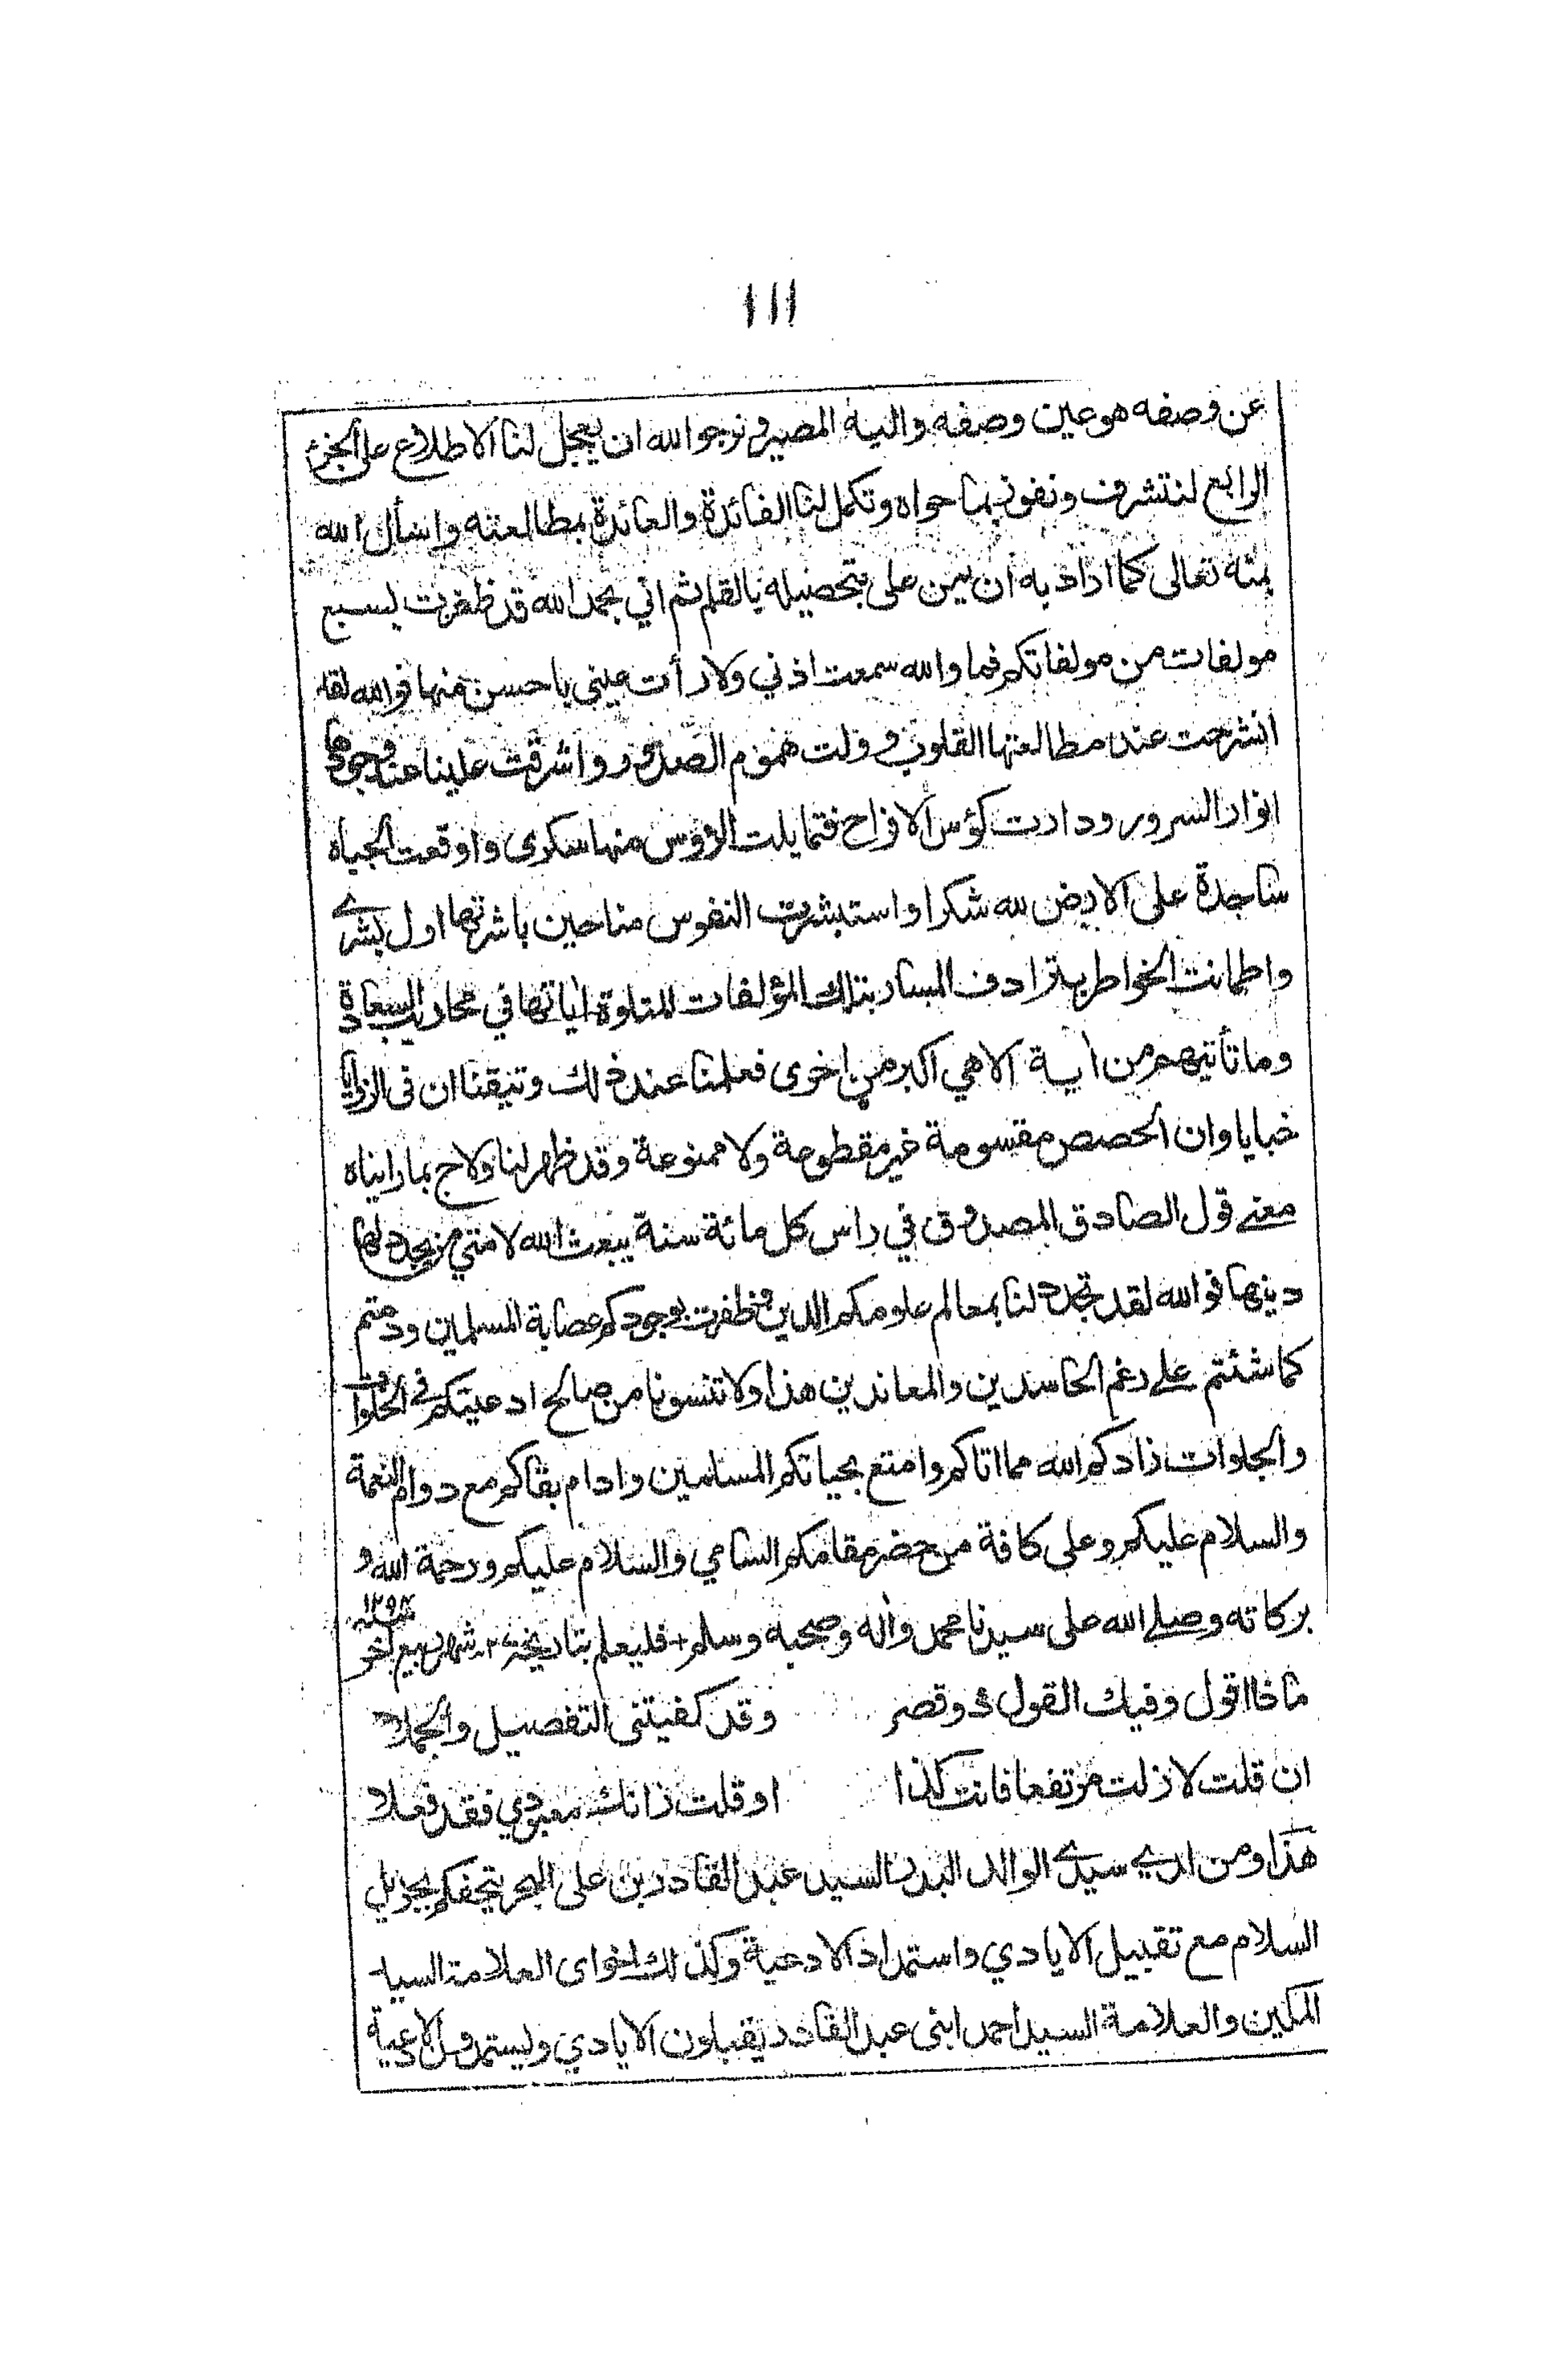 ١١١
عن وصفه هو عين وصفه واليه المصير ونرجوا الله ان يعجل لنا الاطلاع على الجزء
الرابع لنتشرف ونفوز بما حواه وتكمل لنا الفائدة والعائدة بمطالعته واسأل الله
بمنه تعالى كما اراد به ان يمن على بتحصيله بالقلم ثم اني بحمد الله قد ظفرت بسبع
مولفات من مولفاتكم فما والله سمعت اذني ولا رأت عيني باحسن منها فوالله لقد
انشرحت عند مطالعتها القلوب وولت هموم الصدور واشرقت علينا عند وجودها
انوار السرور ودارت كؤس الافراح فتمايلت الرؤس منها سكرى واوقعت الجباه
ساجدة على الارض لله شكرا واستبشرت النفوس منا حين باشرتها اول بشرى
واطمانت الخواطر بترادف المسار بتلك المؤلفات المتلوة اياتها في محاريب السعادة
وما تأتيهم من اية الا هي اكبر من اخرى فعلمنا عند ذلك وتيقنا ان فى الزوايا
خبايا وان الحصص مقسومة غير مقطوعة ولا ممنوعة وقد ظهر لنا ولاح بما رايناه
معنى قول الصادق المصدوق في راس كل مائة سنة يبعث الله لامتي من يجدد لها
دينها فوالله لقد تجدد لنا بمعالم علومكم الدين وظفرت بوجودكم عصابة المسلمين ودمتم
كما شئتم على رغم الحاسدين والمعاندين هذا ولا تنسونا من صالح ادعيتكم في الخلوات
والجلوات زادكم الله مما اتاكم وامتع بحياتكم المسلمين وادام بقاكم مع دوام النعمة
والسلام عليكم وعلى كافة من حضر مقامكم السامي والسلام عليكم ورحمة الله و
بركاته وصلى الله على سيدنا محمد واله وصحبه وسلم + فليعلم بتاريخ شهر ربيع اخر
ماذا اقول وفيك القول ذو قصر وقد كفيتنى التفصيل والجملا
ان قلت لا زلت مرتفعا فانت كذا او قلت زانك معبودي فقد فعلا
هذا ومن لدى سيدى الوالد البدر السيد عبد القادر بن على البحر يتحفكم بجزيل
السلام مع تقبيل الايادي واستمداد الادعية وكذلك اخواى العلامة السيد
المكين والعلامة السيد احمد ابنى عبد القادر يقبلون الايادي وليستمدون الادعية